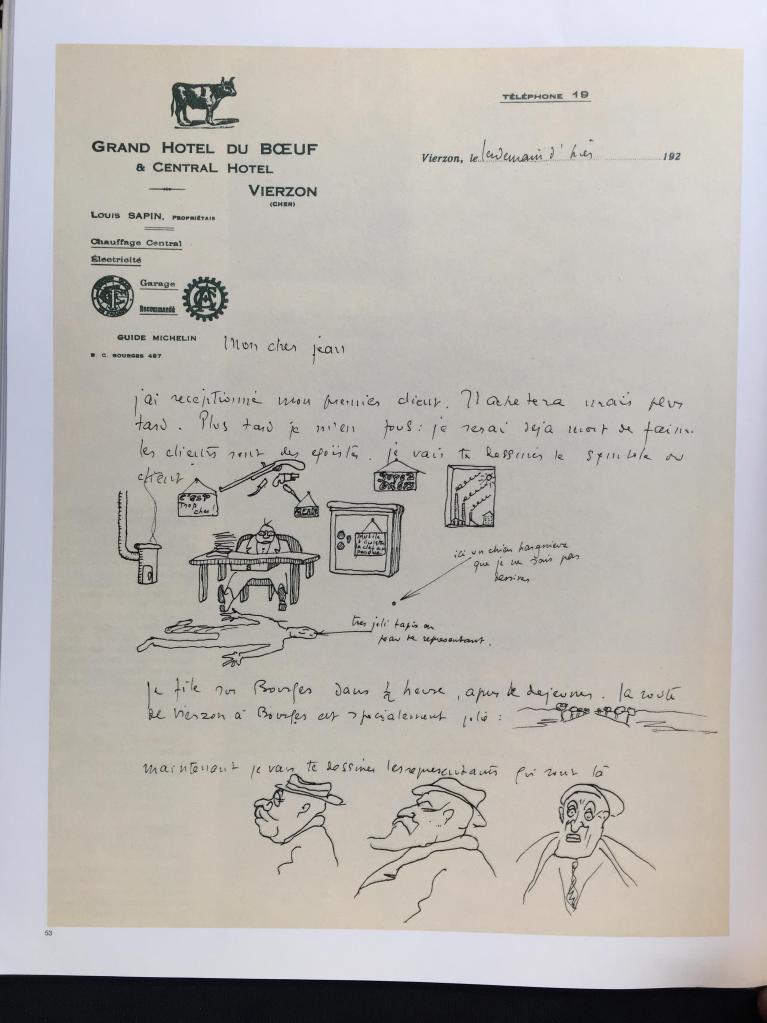 TÉLÉPHONE 19
GRAND HOTEL DU BŒUF
& CENTRAL HOTEL
VIERZON
(CHER)
Vierzon, le lendemain d'hier 192
LOUIS SAPIN, PROPRIÉTAIR
Chauffage Central
Électricité
Garage
Recommandé
GUIDE MICHELIN
R. C. BOURGES 487
Mon cher jean
j'ai receptionné mon premier client. Il achetera mais plus
tard. Plus tard je m'en fous : je serai deja mort de faim.
les clients sont des egoistes. je vais te dessiner le symbole du
client
c'est
trop
cher !
soyez
brefs
inutile
d'insister
la clef est
perdue
ici un chien hargneux
que je ne sais pas
dessiner
tres joli tapis en
peau de representant.
je file sur Bourges dans ½ heure, apres le dejeuner. la route
de Vierzon à Bourges est specialement jolie :
maintenant je vais te dessiner les representants qui sont là
53